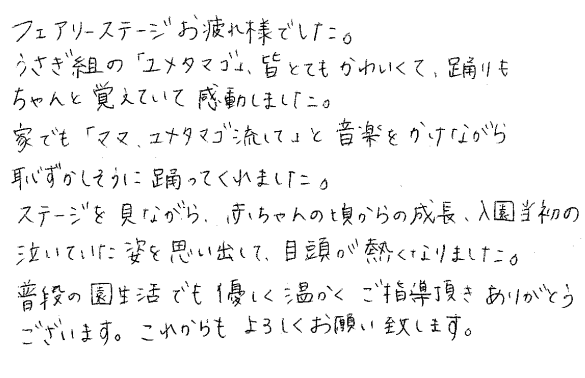 フェアリーステージお疲れ様でした。
うさぎ組の「ユメタマゴ」、皆とてもかわいくて、踊りも
ちゃんと覚えていて感動しました。
家でも「ママ、ユメタマゴ流して」と音楽をかけながら
恥ずかしそうに踊ってくれました。
ステージを見ながら、赤ちゃんの頃からの成長、入園当初の
泣いていた姿を思い出して、目頭が熱くなりました。
普段の園生活でも優しく温かくご指導頂きありがとう
ございます。これからもよろしくお願い致します。